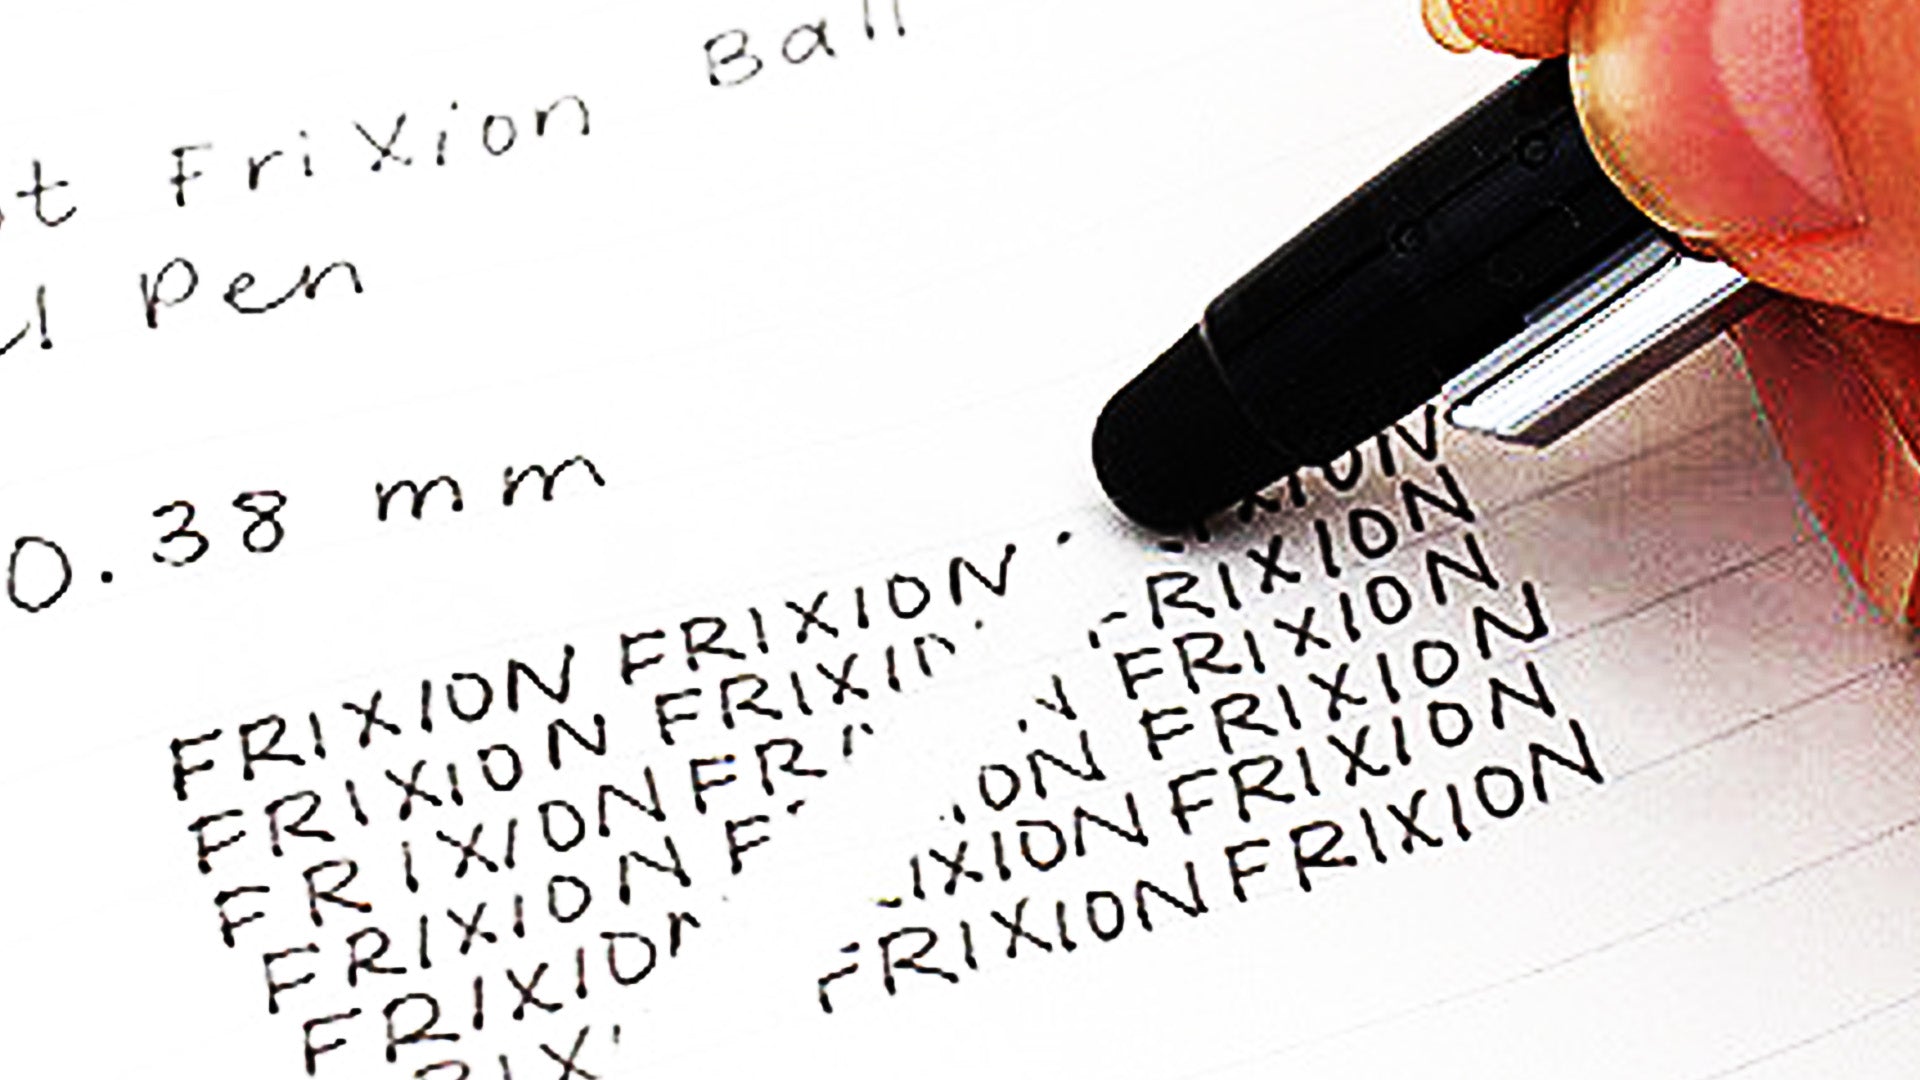 t FriXion Ball
l Pen
0.38 mm
FRIXION FRIXION XION
FRIXION FRIXI RIXION
FRIXION FR FRIXION
FRIXION F ON FRIXION
FRIXIO IXION FRIXION
RIX FRIXION FRIXION